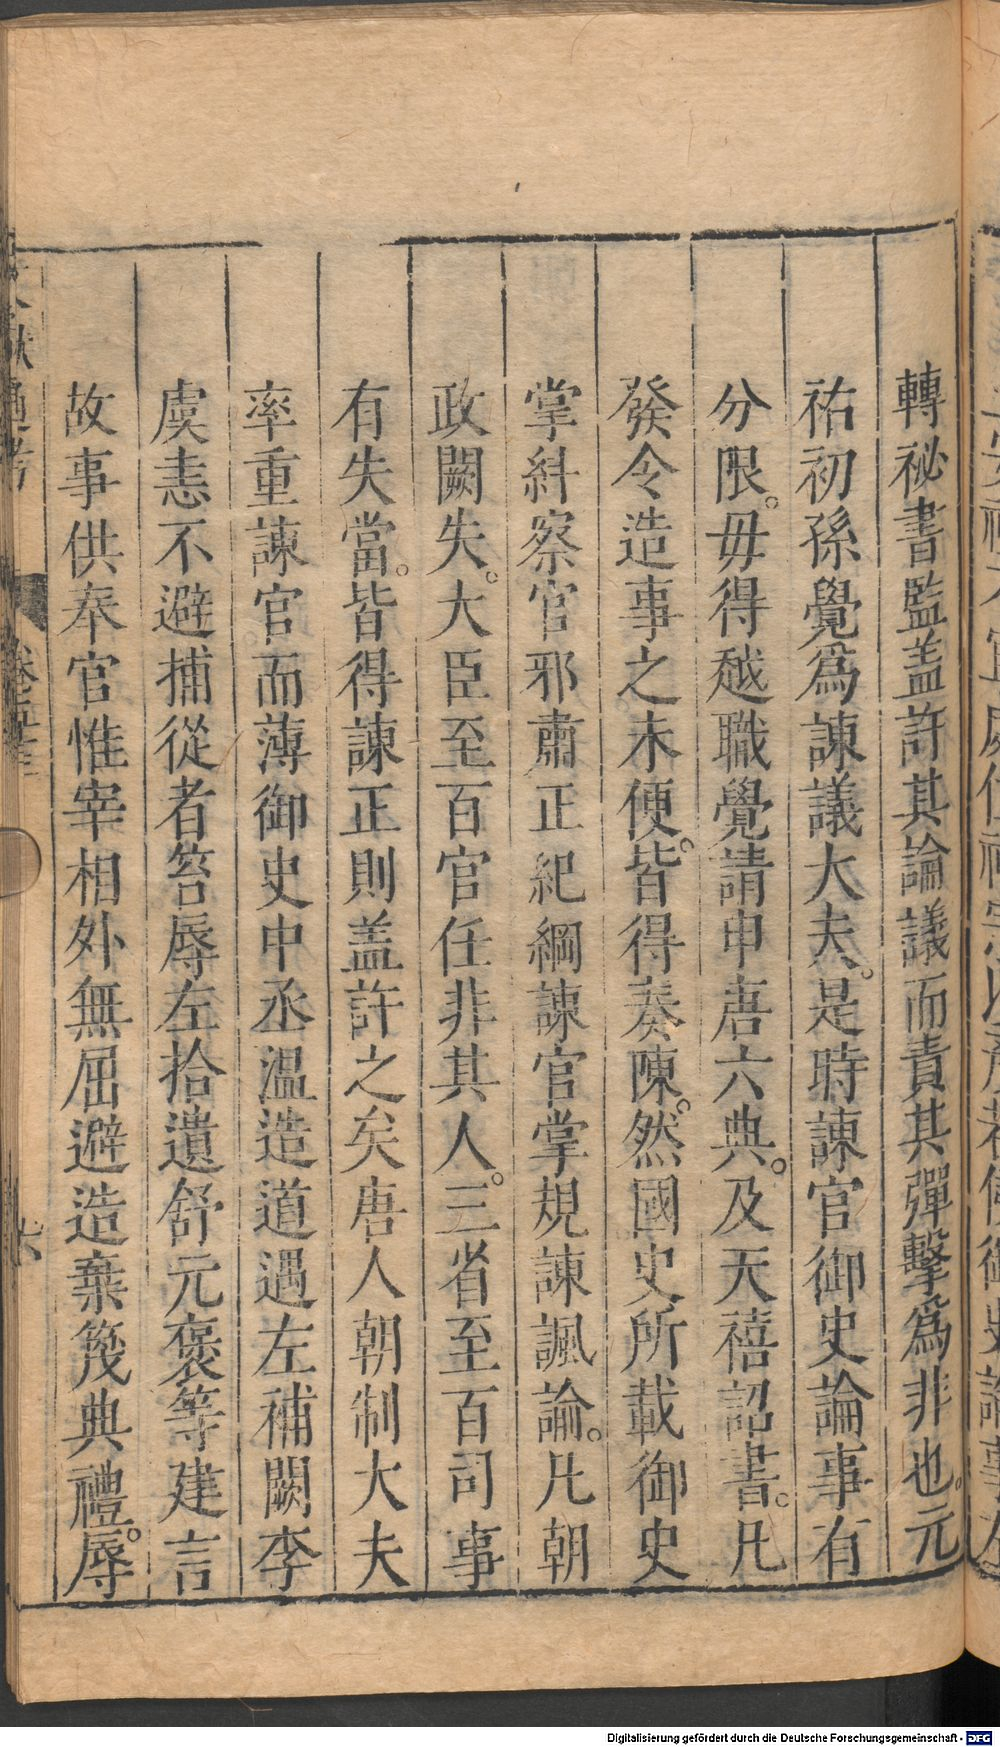 轉祕書監盖許其論議而責其彈擊爲非也。元
祐初孫覺爲諫議大夫。是時諫官御史論事有
分限。毋得越職覺請申唐六典。及天禧詔書。凡
發令造事之未便。皆得奏陳。然國史所載御史
掌糾察官邪肅正紀綱諫官掌規諫諷諭。凡朝
政闕失。大臣至百官任非其人。三省至百司事
有失當。皆得諫正則盖許之矣唐人朝制大夫
率重諫官而薄御史中丞溫造道遇左補闕李
虞恚不避捕從者笞辱左拾遺舒元褒等建言
故事供奉官惟宰相外無屈避造棄筬典禮。辱
文獻通考
Digitalisierung gefördert durch die Deutsche Forschungsgemeinschaft - DFG